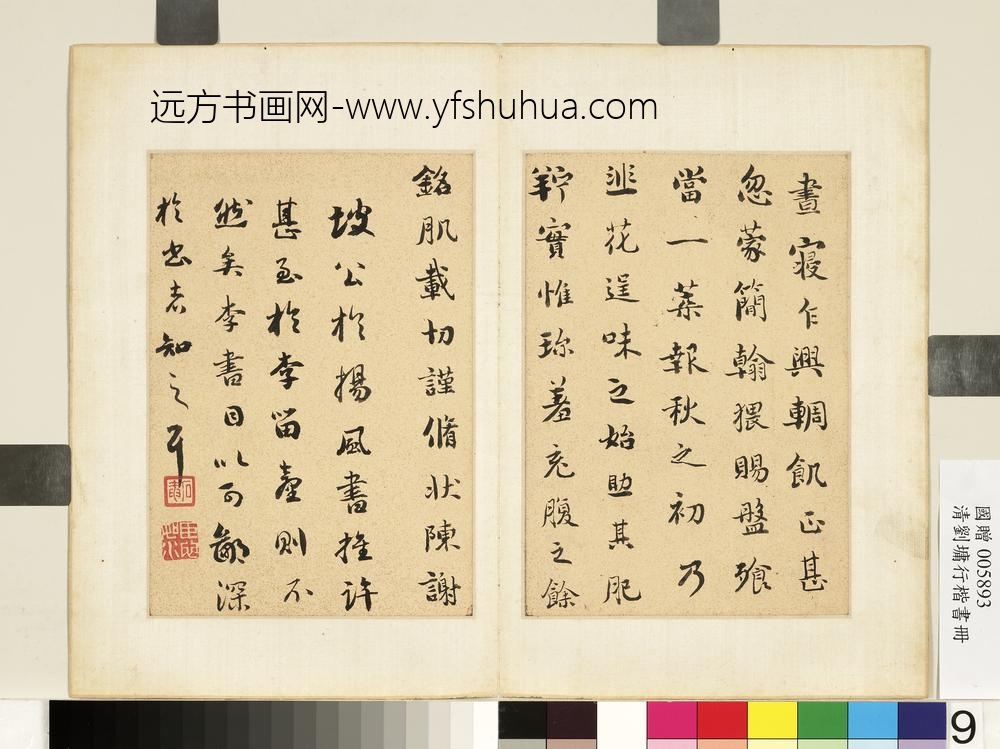 远方书画网-www.yfshuhua.com
晝寢乍興輖飢正甚
忽蒙簡翰猥賜盤飧
當一葉報秋之初乃
韭花逞味之始助其肥
羜實惟珎羞充腹之餘
銘肌載切謹脩狀陳謝
坡公於楊風書推許
甚至於李留臺則不
然矣李書自以可歠深
於書者知之 石庵
國贈 005893
清劉墉行楷書冊
9